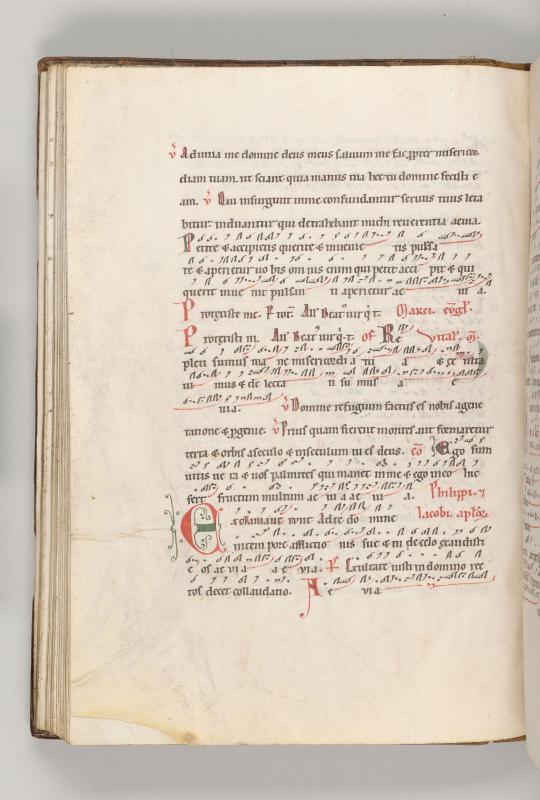 v Adiuva me domine deus meus saluum me fac ꝓpter misericor
diam tuam. ut sciant quia manus tua hec tu domine fecisti e
am. v Qui insurgunt in me confundantur seruus tuus leta
bitur induantur qui detrahebant michi reuerentia aeuia.
Petite & accipietis querite & inuenie tis pulsa
te & aperietur uo bis om nis enim qui petit acci pit & qui
querit inue nit pulsan ti aperietur ae ui a.
Protexisti me. Marci. eugl.
Protexisti m. of Re
pleti sumus ma ne misericordi a tu a & ex ulta
ui mus & de lecta ti su mus a e
uia. v Domine refugium factus es nobis a gene
ratione & ꝓgenie. v Prius quam fierent montes aut formaretur
terra & orbis a seculo & in seculum tu es deus. co Ego sum
uitis ue ra & uos palmites qui manet in me & ego in eo hic
fert fructum multum ae ui a ae ui a. Philippi. 7
Exclamaue runt ad te do mine Iacobi. aplor.
in tem pore afflictio nis sue & tu de celo exaudisti
e os ae ui a a e uia. Exultate iusti in domino rec
tos decet collaudatio. A e via